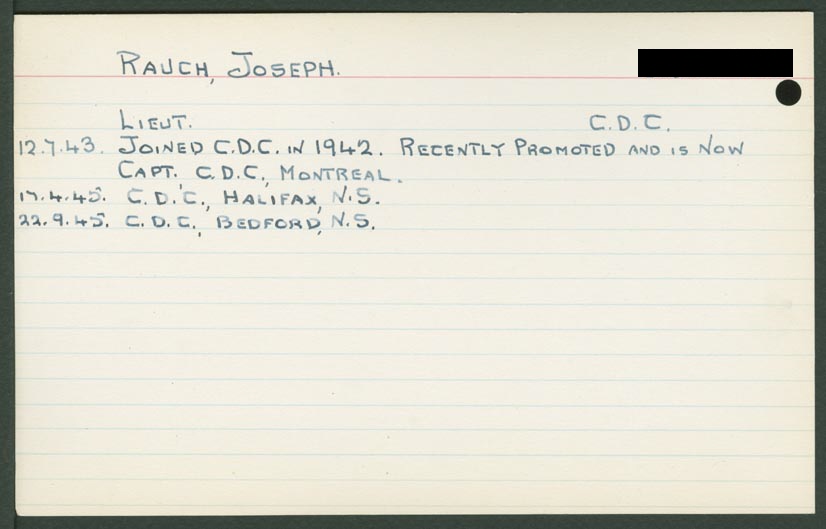 RAUCH, JOSEPH.
LIEUT. C.D.C.
12.7.43. JOINED C.D.C. IN 1942. RECENTLY PROMOTED AND IS NOW
CAPT. C.D.C., MONTREAL.
17.4.45. C.D.C., HALIFAX, N.S.
22.9.45. C.D.C., BEDFORD, N.S.